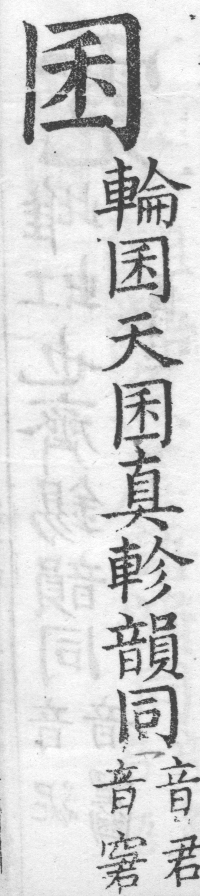 囷
輪囷天囷真軫韻同
音君
音窘